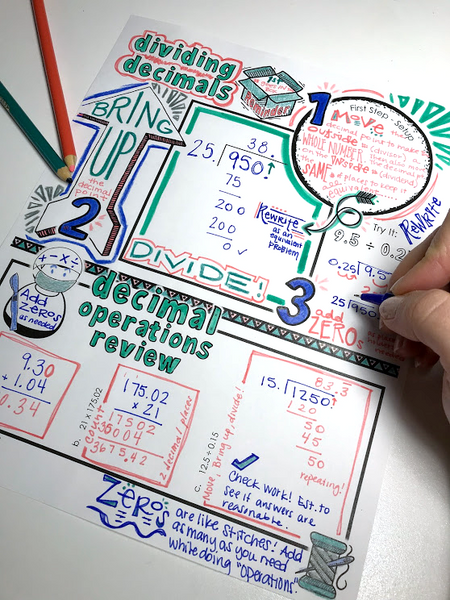 dividing
decimals
Reminders
1
First Step - Setup
Move the
decimal point to make the
outside (divisor) a
WHOLE NUMBER, then also move
the decimal point
INSIDE (dividend)
SAME # places to keep it
equivalent.
Try It:
REWRITE
9.5 ÷ 0.2
0.25 9.5
25 950
BRING
UP
the
decimal
point
2
38.
25. 950
75
200
200
0 ✓
REWRITE
as an
equivalent
problem
DIVIDE!
3
add
ZEROs
+ - × ÷
Add
Zeros
as needed
decimal
operations
review
9.30
+ 1.04
0.34
Count
175.02
× 21
17502
35004
3675.42
2 decimal places
b. 21 × 175.02
c. 12.5 ÷ 0.15
Move, Bring up, divide!
83.3
15. 1250
120
50
45
50
repeating!
✓ Check work! Est. to
see if answers are
reasonable.
Zeros are like stitches! Add
as many as you need
while doing "operations".